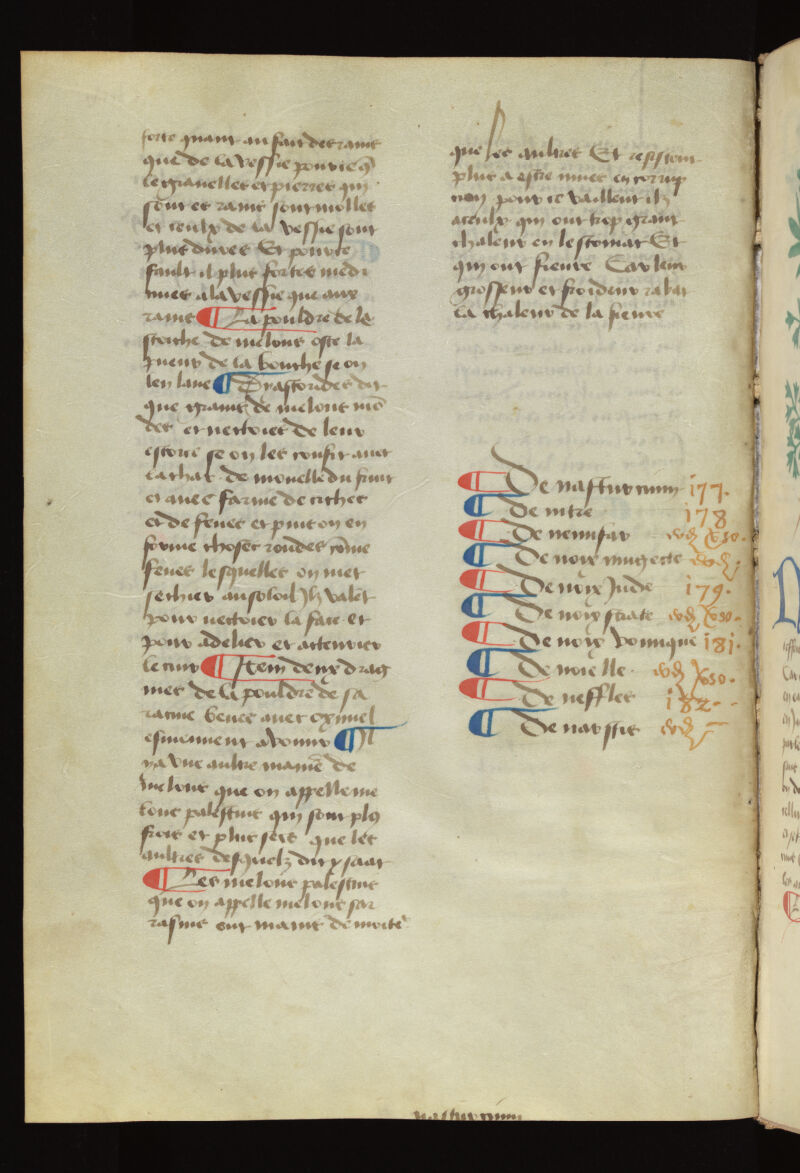 forte quant au fait des rains
que de la vessie pource q̄
les grauelles et pierres qui
sont es rains sont molles
et ceulx de la vessie sont
plus dures Et pource
fault il plus fortes medi
cines a la vessie que aux
rains ¶ La pouldre de le
scorche de melons oste la
pueur de la bouche se on
len laue ¶ Dyascorides dit
que grains de melons mō
des et nectoies de leur
escorce se on les confit auec
la char de mouelle du fruit
et auec farine de ciches
et de feues et puis on en
forme choses rondes cōme
feues lesquelles on met
sechier au soloil Ilz valēt
pour nectoier la face et
pour adelier et attenuier
le cuir ¶ Item deux drag
mes de la pouldre de sa
racine beues auec oximel
esmeuuent a vomir ¶ Il
ya vne aultre maniē de
melons que on appelle me
lons palestins qui sont plꝰ
frois et plus secs que les
aultres desquelz dit ysaac
¶ Les melons palestins
que on appelle melons sar
rasins ont mains de moite
que les aultres Et resistent
plus a estre mues en corrup
cion pour ce vaillent ilz
a ceulx qui ont trop grant
chaleur en lestomac Et
qui ont fieure Car leur
grosseur et froideur rabat
la chaleur de la fieure
¶ De nasturcium 177.
¶ De nitre 178
¶ De nenufar
¶ De noix mugecte
¶ De noix Inde 179.
¶ De noix scate
¶ De noix vomique 181.
¶ De nielle
¶ De neffles 182
¶ De narscis
nasturcium